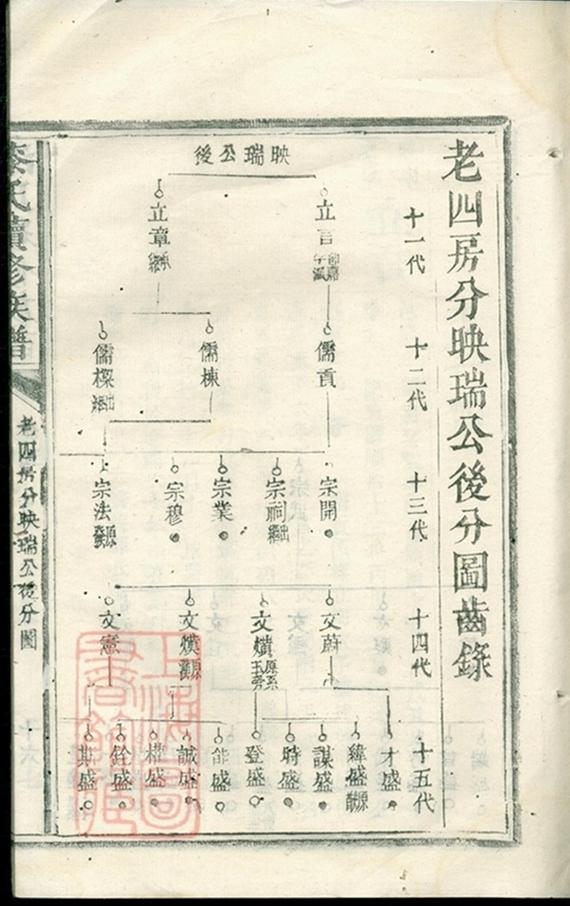 老四房分映瑞公後分圖齒錄
十一代
十二代
十三代
十四代
十五代
映瑞公後
立言
立章
儒貢
儒棟
儒櫸
宗開
宗祠
宗業
宗穆
宗法
文蔚
文熿 原系玉旁
文燧
文憲
才盛
緯盛
謀盛
時盛
登盛
能盛
誠盛
權盛
銓盛
其盛
氏續修族譜
老四房分映瑞公後分圖